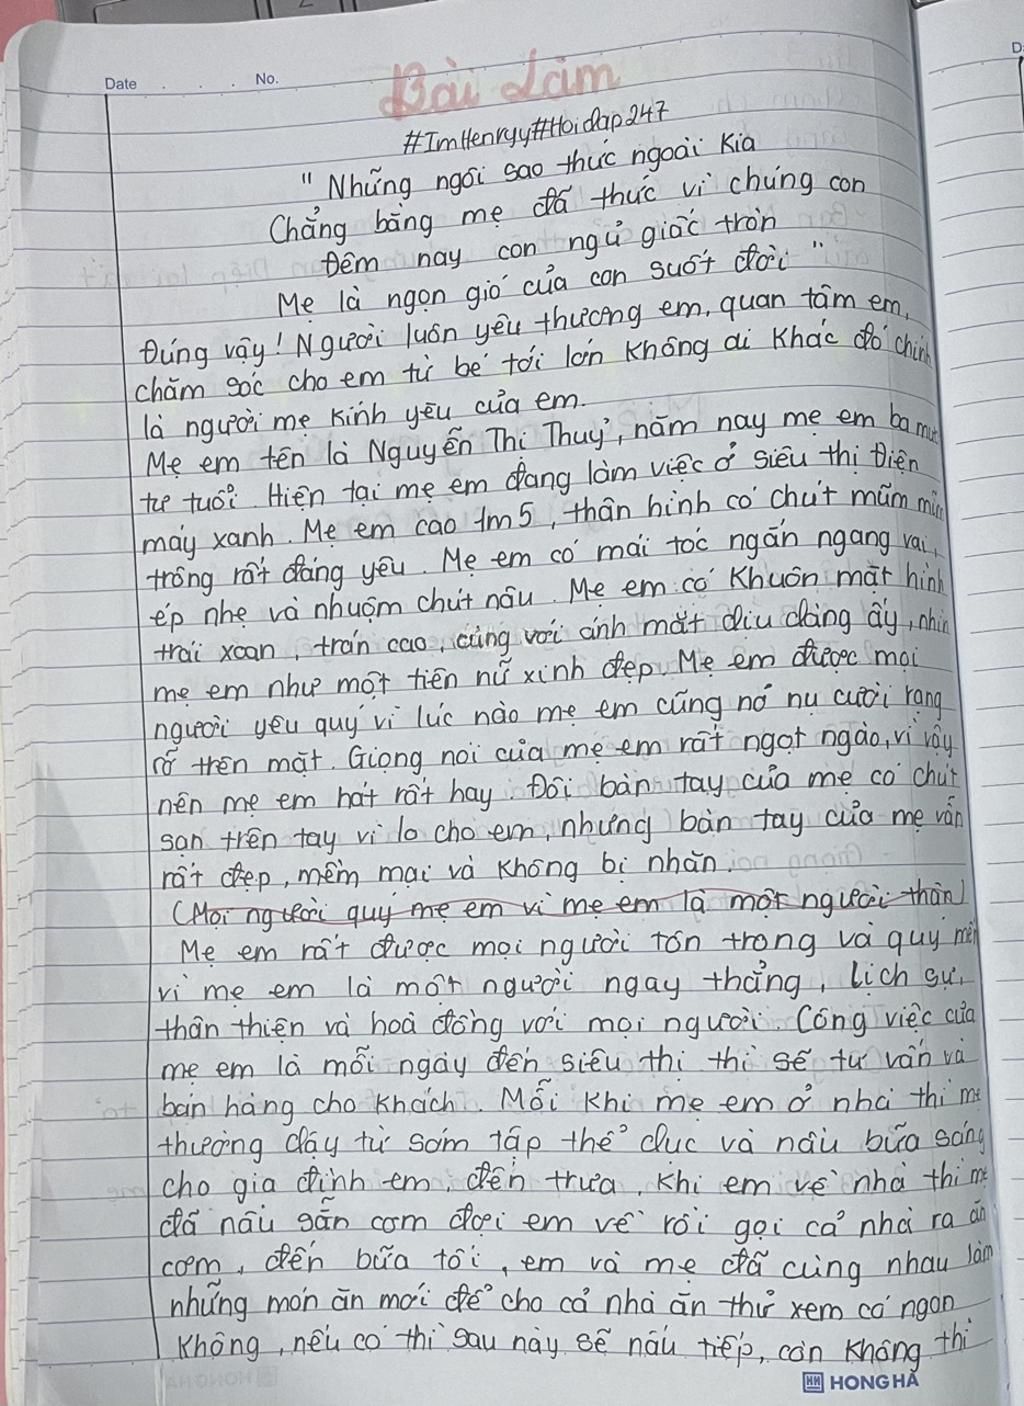 Date No.
Bài Làm
#ImHenryy#Hoidap247
" Những ngôi sao thức ngoài kia
Chẳng bằng mẹ đã thức vì chúng con
Đêm nay con ngủ giấc tròn
Mẹ là ngọn gió của con suốt đời "
Đúng vậy! Người luôn yêu thương em, quan tâm em,
chăm sóc cho em từ bé tới lớn không ai khác đó chính
là người mẹ kính yêu của em.
Mẹ em tên là Nguyễn Thị Thuỷ, năm nay mẹ em ba mươi
tư tuổi. Hiện tại mẹ em đang làm việc ở siêu thị Điện
máy xanh. Mẹ em cao 1m5, thân hình có chút mũm mĩm
trông rất đáng yêu. Mẹ em có mái tóc ngắn ngang vai,
ép nhẹ và nhuộm chút nâu. Mẹ em có khuôn mặt hình
trái xoan, trán cao, cùng với ánh mắt dịu dàng ấy, nhìn
mẹ em như một tiên nữ xinh đẹp. Mẹ em được mọi
người yêu quý vì lúc nào mẹ em cũng nở nụ cười rạng
rỡ trên mặt. Giọng nói của mẹ em rất ngọt ngào, vì vậy
nên mẹ em hát rất hay. Đôi bàn tay của mẹ có chút
sạn trên tay vì lo cho em, nhưng bàn tay của mẹ vẫn
rất đẹp, mềm mại và không bị nhăn.
(Mọi người quý mẹ em vì mẹ em là một người thân)
Mẹ em rất được mọi người tôn trọng và quý mến
vì mẹ em là một người ngay thẳng, lịch sự,
thân thiện và hoà đồng với mọi người. Công việc của
mẹ em là mỗi ngày đến siêu thị thì sẽ tư vấn và
bán hàng cho khách. Mỗi khi mẹ em ở nhà thì mẹ
thường dậy từ sớm tập thể dục và nấu bữa sáng
cho gia đình em, đến trưa, khi em về nhà thì mẹ
đã nấu sẵn cơm đợi em về rồi gọi cả nhà ra ăn
cơm, đến bữa tối, em và mẹ đã cùng nhau làm
những món ăn mới để cho cả nhà ăn thử xem có ngon
không, nếu có thì sau này sẽ nấu tiếp, còn không thì
HH HONG HÀ